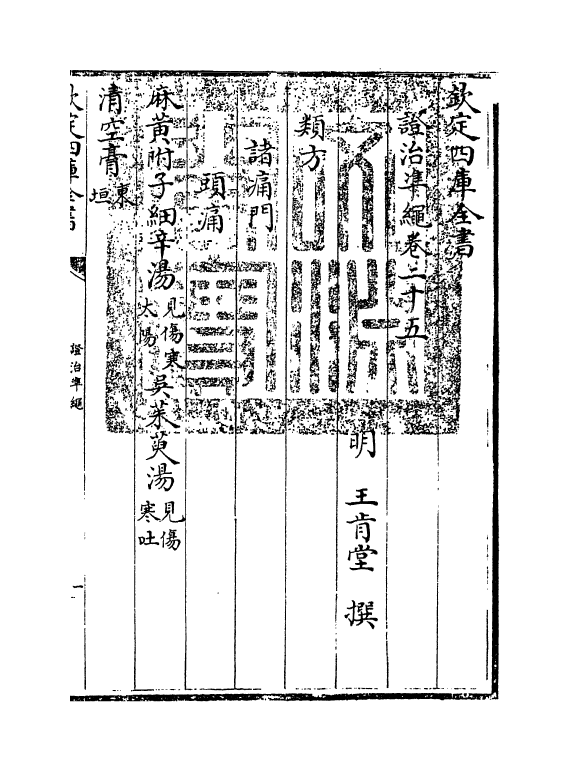 欽定四庫全書
證治準繩卷二十五
明 王肯堂 撰
類方
諸痛門
頭痛
麻黃附子細辛湯見傷寒太陽吳茱萸湯見傷寒吐
清空膏東垣
欽定四庫全書
證治準繩
一